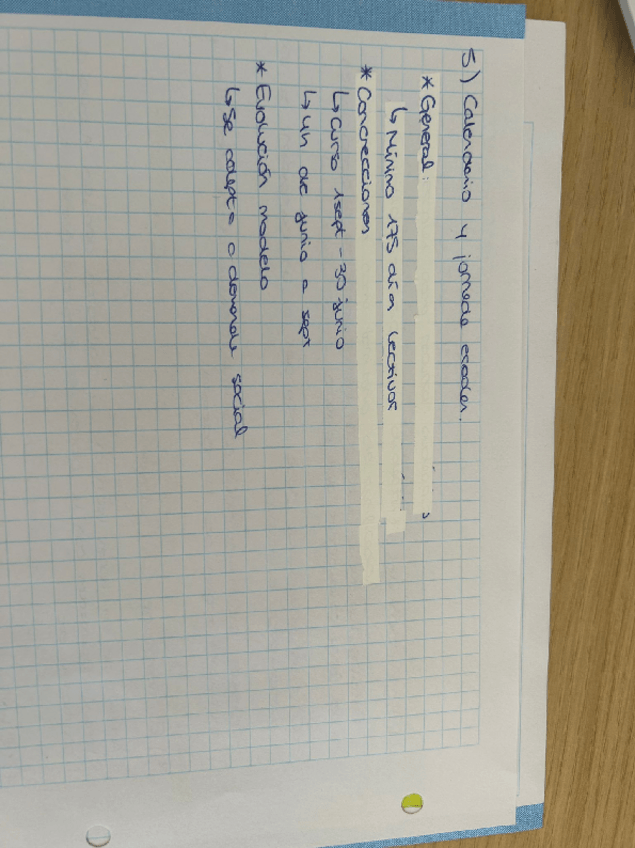 5) Calendario y jornada escolar.
* General:
↳ Mínimo 175 día lectivos
* Concrecciones
↳ Curso 1 sept - 30 junio
↳ de junio a sept
* Evolución modelo
↳ Se adapta a demanda social